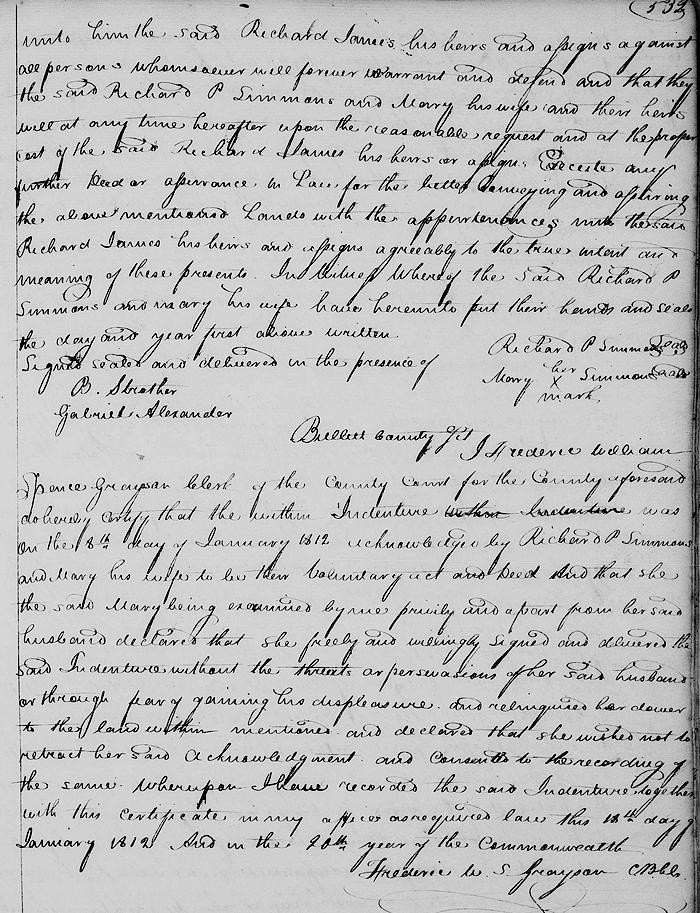 532
unto him the said Richard James his heirs and assigns against
all persons whomsoever will forever warrant and defend and that they
the said Richard P Simmons and Mary his wife and their heirs
will at any time hereafter upon the reasonable request and at the proper
cost of the said Richard James his heirs or assigns Execute any
further Deed or assurance in Law for the better Conveying and assuring
the above mentioned Lands with the appurtenances unto the said
Richard James his heirs and assigns agreeably to the true intent and
meaning of these presents. In Witness Whereof the said Richard P
Simmons and mary his wife have hereunto put their hands and seals
the day and year first above written
Signed sealed and delivered in the presence of
Richard P Simmons Seal
B. Strother
Mary her X mark Simmons Seal
Gabriel Alexander
Bullitt County Sct
I Frederic William
Spence Grayson Clerk of the County Court for the County aforesaid
do hereby certify that the within Indenture Indenture was
on the 8th day of January 1812 acknowledged by Richard P Simmons
and Mary his wife to be their Voluntary act and Deed And that she
the said Mary being examined by me privily and apart from her said
husband declared that she freely and willingly signed and delivered the
said Indenture without the threats or perswasions of her said husband
or through fear of gaining his displeasure. and relinquised her dower
to the land within mentioned and declared that she wished not to
retract her said acknowledgment. and Consents to the recording of
the same. Whereupon I have recorded the said Indenture together
with this certificate in my office as required law this 18th day of
January 1812 And in the 20th year of the Commonwealth
Frederic W. S. Grayson CBCC.